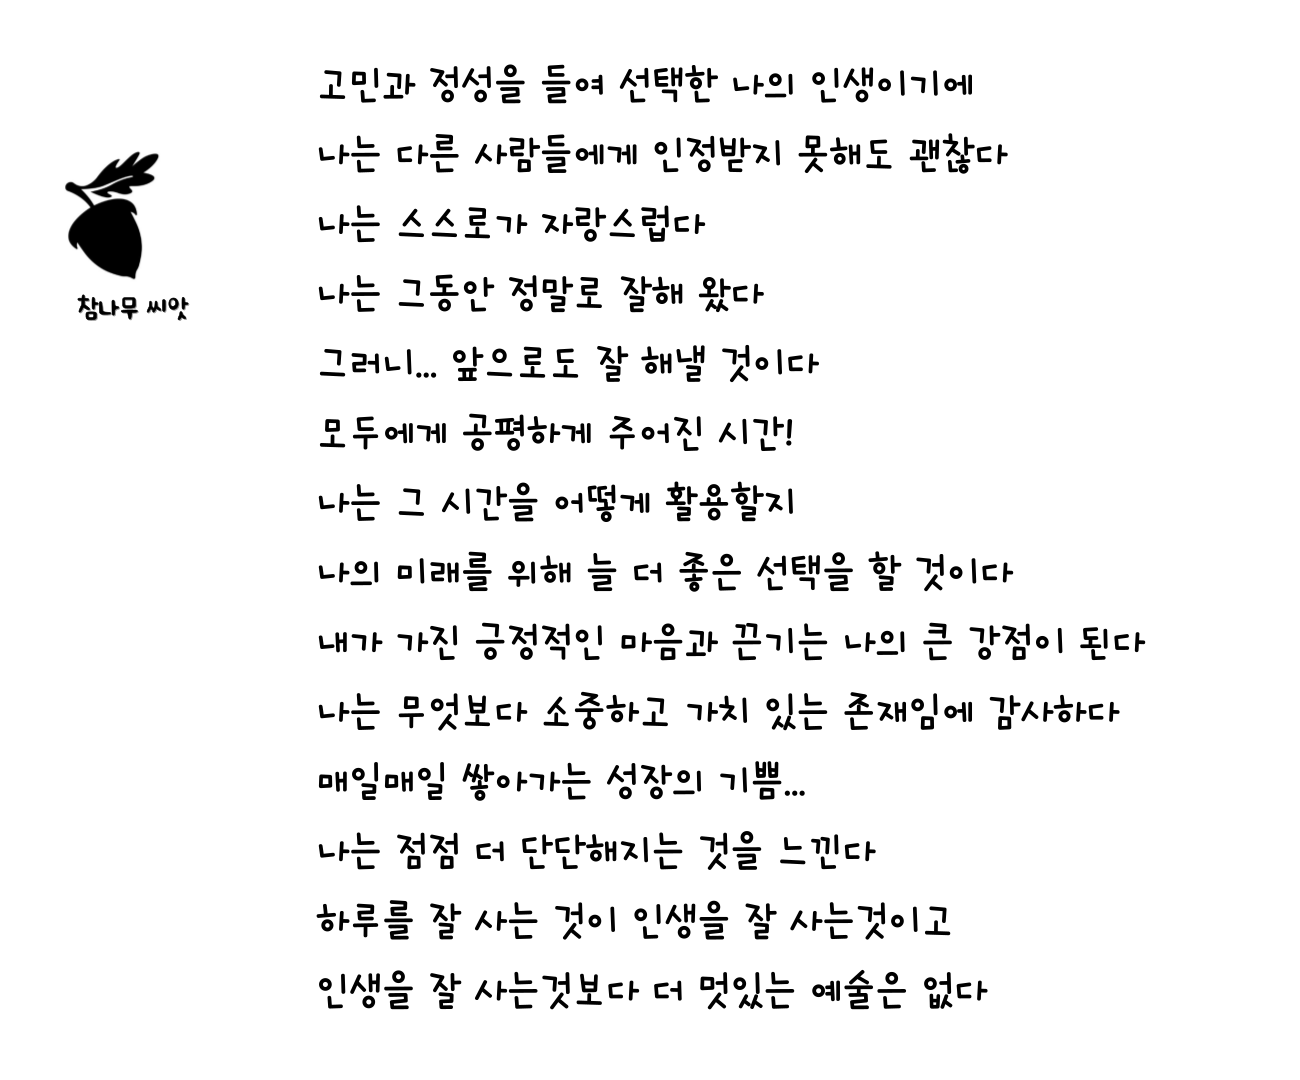 고민과 정성을 들여 선택한 나의 인생이기에
나는 다른 사람들에게 인정받지 못해도 괜찮다
나는 스스로가 자랑스럽다
나는 그동안 정말로 잘해 왔다
그러니... 앞으로도 잘 해낼 것이다
모두에게 공평하게 주어진 시간!
나는 그 시간을 어떻게 활용할지
나의 미래를 위해 늘 더 좋은 선택을 할 것이다
내가 가진 긍정적인 마음과 끈기는 나의 큰 강점이 된다
나는 무엇보다 소중하고 가치 있는 존재임에 감사하다
매일매일 쌓아가는 성장의 기쁨...
나는 점점 더 단단해지는 것을 느낀다
하루를 잘 사는 것이 인생을 잘 사는것이고
인생을 잘 사는것보다 더 멋있는 예술은 없다
참나무 씨앗